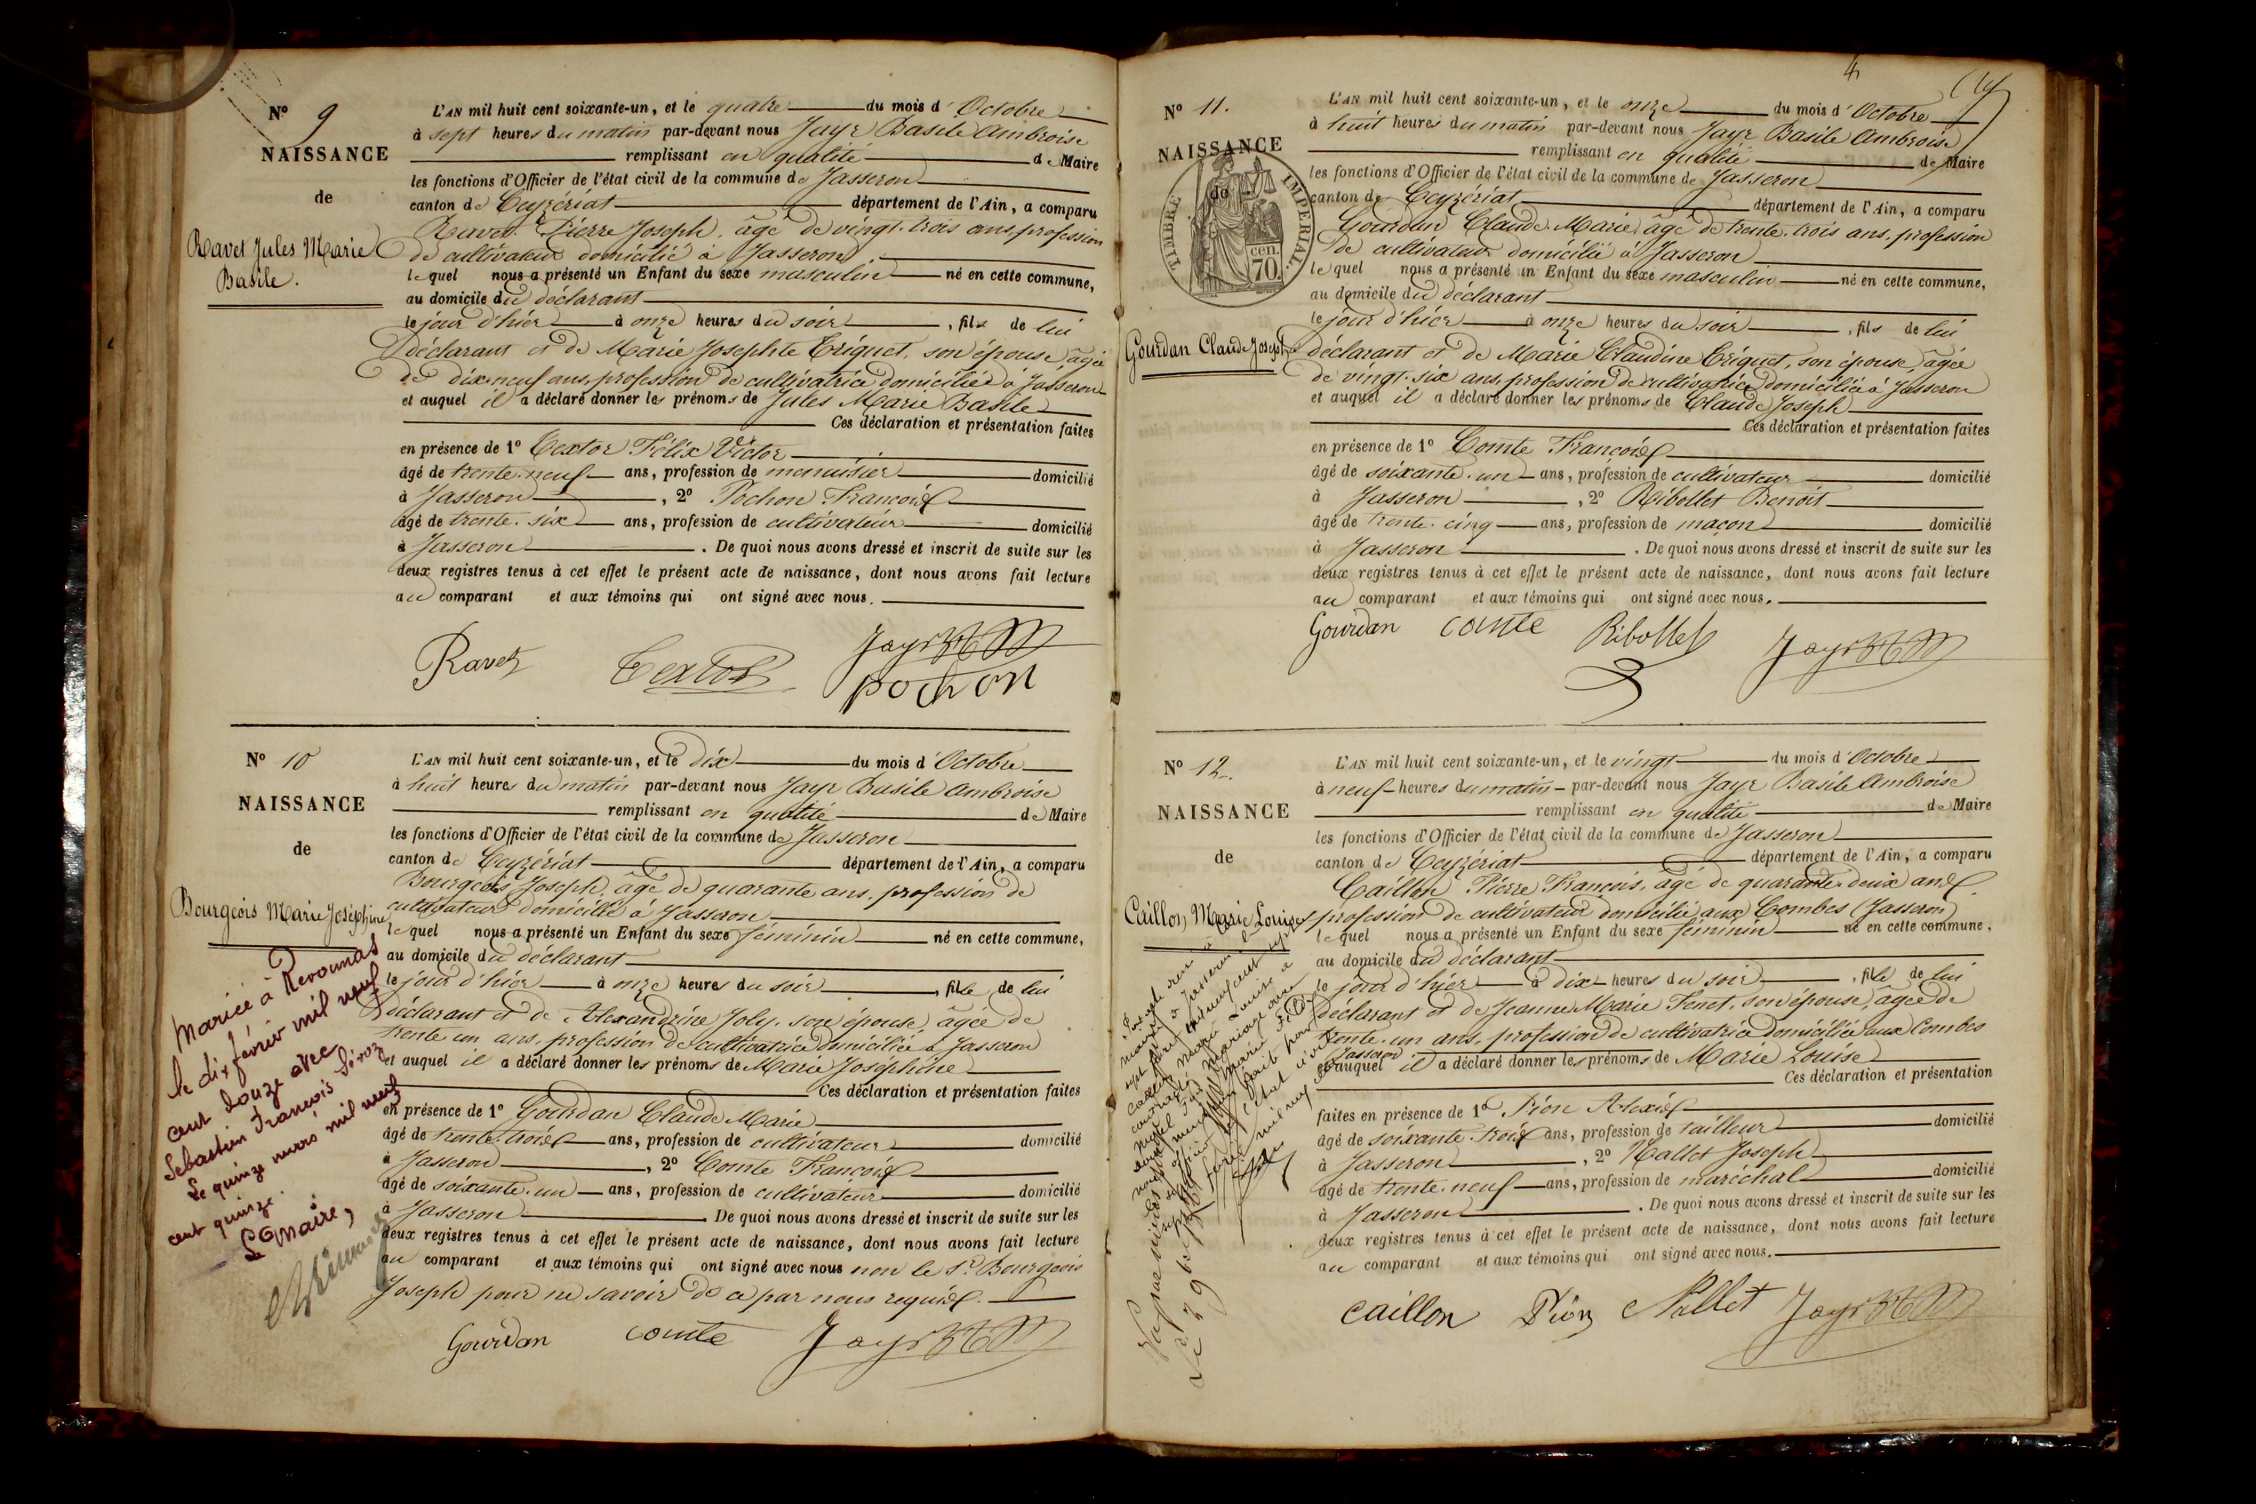 Nº 9
NAISSANCE
de
Ravet Jules Marie
Basile.
L'AN mil huit cent soixante-un, et le quatre du mois d'Octobre
à sept heures du matin par-devant nous Jayr Basile Ambroise
remplissant en qualité de Maire
les fonctions d'Officier de l'état civil de la commune de Jasseron
canton de Ceyzériat département de l'Ain, a comparu
Ravet Pierre Joseph, âgé de vingt-trois ans, profession
de cultivateur domicilié à Jasseron
lequel nous a présenté un Enfant du sexe masculin né en cette commune,
au domicile du déclarant
le jour d'hier à onze heures du soir, fils de lui
déclarant et de Marie Josephte Criquet, son épouse, âgée
de dix-neuf ans, profession de cultivatrice domiciliée à Jasseron
et auquel il a déclaré donner les prénoms de Jules Marie Basile
Ces déclaration et présentation faites
en présence de 1º Textor Félix Victor
âgé de trente-neuf ans, profession de menuisier domicilié
à Jasseron, 2º Pochon François
âgé de trente-six ans, profession de cultivateur domicilié
à Jasseron. De quoi nous avons dressé et inscrit de suite sur les
deux registres tenus à cet effet le présent acte de naissance, dont nous avons fait lecture
au comparant et aux témoins qui ont signé avec nous.
Ravet Textor Jayr
Pochon
Nº 10
NAISSANCE
de
Bourgeois Marie Joséphine
Mariée à Revonnas
le dix février mil neuf
cent douze avec
Sébastien François
Le quinze mars mil neuf
cent quinze.
Le Maire,
L'AN mil huit cent soixante-un, et le dix du mois d'Octobre
à huit heures du matin par-devant nous Jayr Basile Ambroise
remplissant en qualité de Maire
les fonctions d'Officier de l'état civil de la commune de Jasseron
canton de Ceyzériat département de l'Ain, a comparu
Bourgeois Joseph, âgé de quarante ans, profession de
cultivateur domicilié à Jasseron
lequel nous a présenté un Enfant du sexe féminin né en cette commune,
au domicile du déclarant
le jour d'hier à onze heures du soir, fille de lui
déclarant et de Alexandrine Joly, son épouse, âgée de
trente un ans, profession de cultivatrice domiciliée à Jasseron
et auquel il a déclaré donner les prénoms de Marie Joséphine
Ces déclaration et présentation faites
en présence de 1º Gourdan Claude Marie
âgé de trente-trois ans, profession de cultivateur domicilié
à Jasseron, 2º Comte François
âgé de soixante-un ans, profession de cultivateur domicilié
à Jasseron. De quoi nous avons dressé et inscrit de suite sur les
deux registres tenus à cet effet le présent acte de naissance, dont nous avons fait lecture
au comparant et aux témoins qui ont signé avec nous non le Sr Bourgeois
Joseph pour ne savoir de ce par nous requis.
Gourdan Comte Jayr
4
Nº 11.
NAISSANCE
de
TIMBRE IMPERIAL.
70 cen.
Gourdan Claude Joseph
L'AN mil huit cent soixante-un, et le onze du mois d'Octobre
à huit heures du matin par-devant nous Jayr Basile Ambroise
remplissant en qualité de Maire
les fonctions d'Officier de l'état civil de la commune de Jasseron
canton de Ceyzériat département de l'Ain, a comparu
Gourdan Claude Marie, âgé de trente-trois ans, profession
de cultivateur domicilié à Jasseron
lequel nous a présenté un Enfant du sexe masculin né en cette commune,
au domicile du déclarant
le jour d'hier à onze heures du soir, fils de lui
déclarant et de Marie Claudine Criquet, son épouse, âgée
de vingt-six ans, profession de cultivatrice domiciliée à Jasseron
et auquel il a déclaré donner les prénoms de Claude Joseph
Ces déclaration et présentation faites
en présence de 1º Comte François
âgé de soixante-un ans, profession de cultivateur domicilié
à Jasseron, 2º Ribollet Benoit
âgé de trente-cinq ans, profession de maçon domicilié
à Jasseron. De quoi nous avons dressé et inscrit de suite sur les
deux registres tenus à cet effet le présent acte de naissance, dont nous avons fait lecture
au comparant et aux témoins qui ont signé avec nous.
Gourdan Comte Ribollet Jayr
Nº 12.
NAISSANCE
de
Caillon Marie Louise
L'AN mil huit cent soixante-un, et le vingt du mois d'Octobre
à neuf heures du matin par-devant nous Jayr Basile Ambroise
remplissant en qualité de Maire
les fonctions d'Officier de l'état civil de la commune de Jasseron
canton de Ceyzériat département de l'Ain, a comparu
Caillon Pierre François, âgé de quarante-deux ans,
profession de cultivateur domicilié aux Combes (Jasseron)
lequel nous a présenté un Enfant du sexe féminin né en cette commune,
au domicile du déclarant
le jour d'hier à dix heures du soir, fille de lui
déclarant et de Jeanne Marie Fenet, son épouse, âgée de
trente-un ans, profession de cultivatrice domiciliée aux Combes
Jasseron
et auquel il a déclaré donner les prénoms de Marie Louise
Ces déclaration et présentation
faites en présence de 1º Pion Alexis
âgé de soixante-trois ans, profession de tailleur domicilié
à Jasseron, 2º Nallet Joseph
âgé de trente-neuf ans, profession de maréchal domicilié
à Jasseron. De quoi nous avons dressé et inscrit de suite sur les
deux registres tenus à cet effet le présent acte de naissance, dont nous avons fait lecture
au comparant et aux témoins qui ont signé avec nous.
Caillon Pion Nallet Jayr